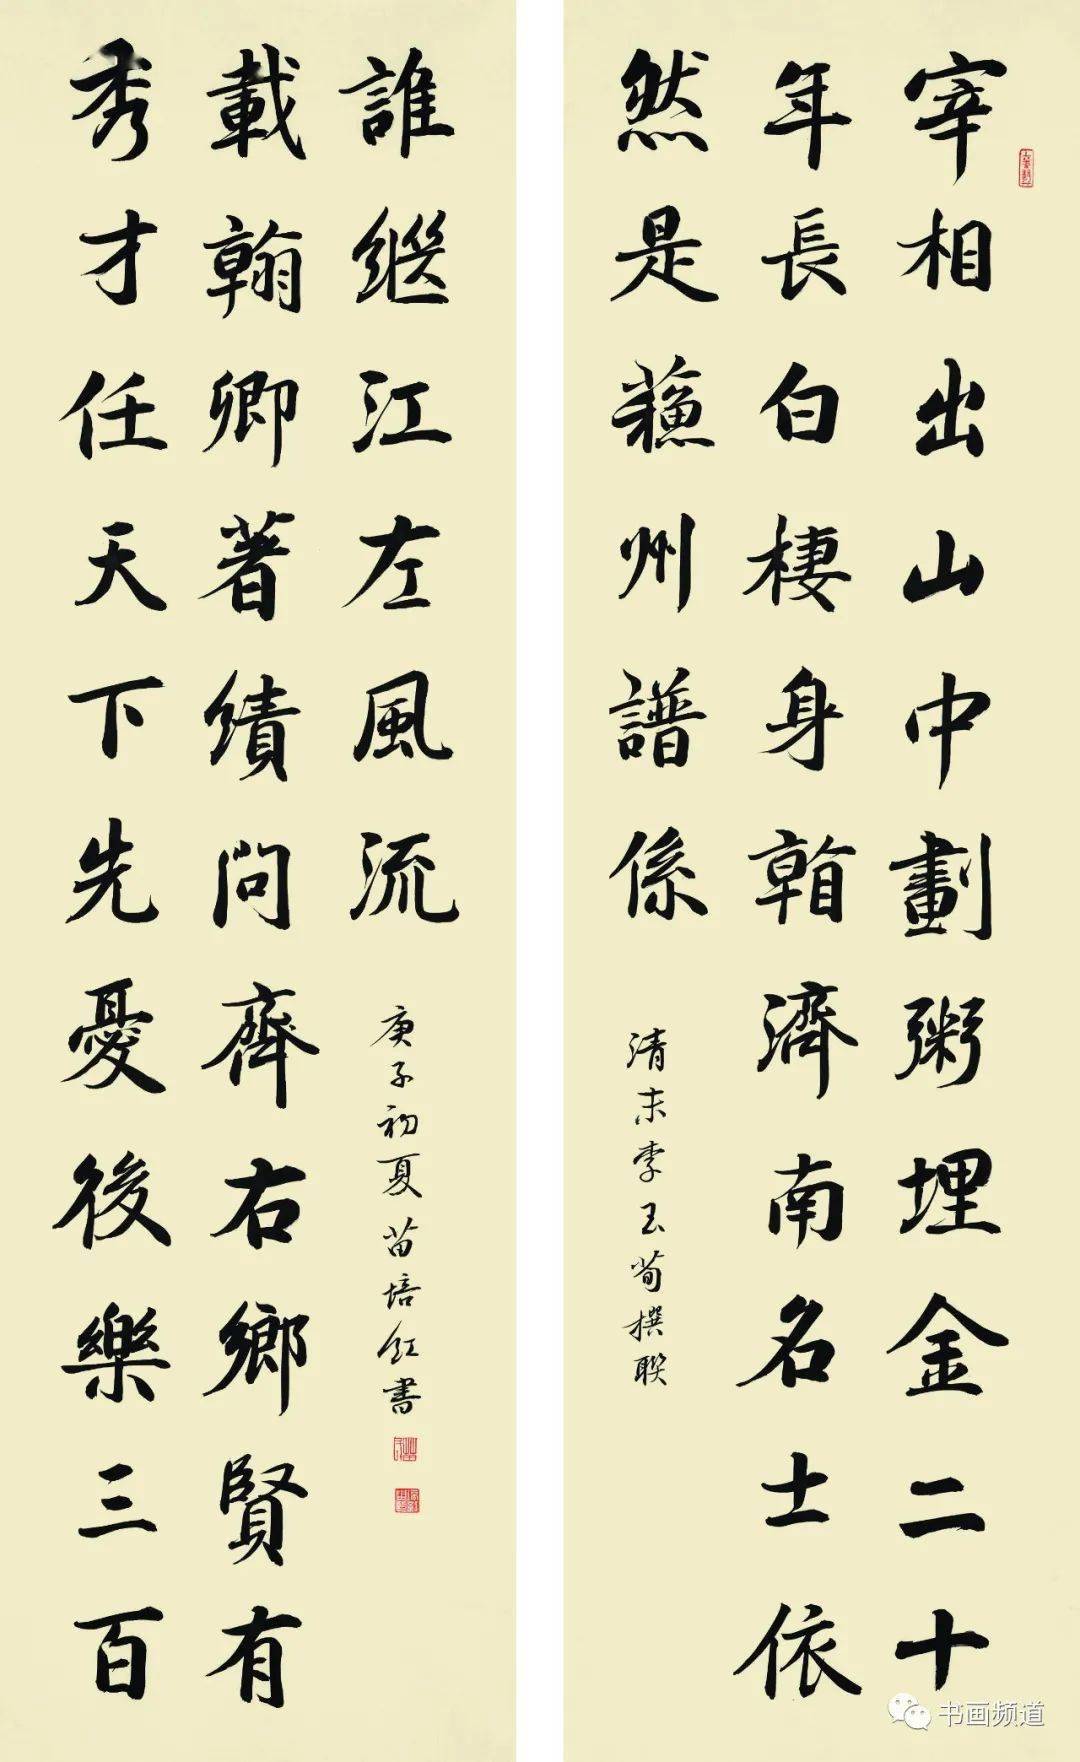 宰相出山中劃粥埋金二十
年長白棲身看濟南名士依
然是蘓州譜係
清末李玉荀撰聯
秀才任天下先憂後樂三百
載翰卿著績問齊右鄉賢有
誰繼江左風流
庚子初夏苗培紅書
书画频道